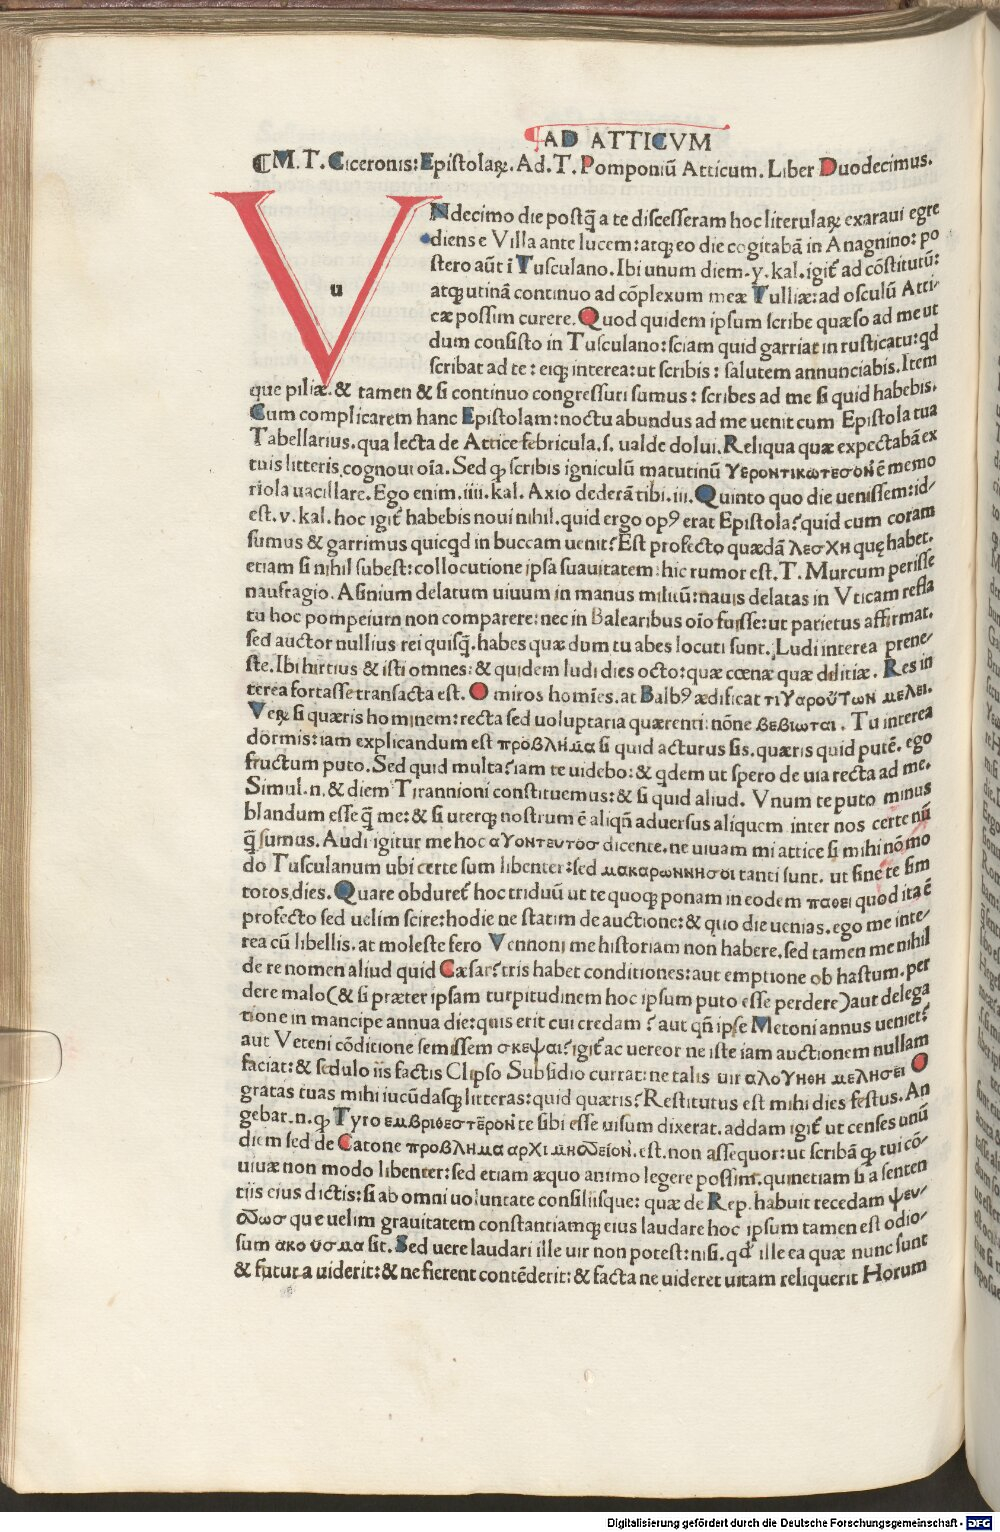 AD ATTICVM
M.T. Ciceronis: Epistolaꝝ. Ad. T. Pomponiū Atticum. Liber Duodecimus.
V u
Ndecimo die postq̄ a te discesseram hoc literulaꝝ exaraui egre
diens e Villa ante lucem: atqꝫ eo die cogitabā in Anagnino: po
stero aūt ī Tusculano. Ibi unum diem. y. kal. igit᷑ ad cōstitutū:
atqꝫ utinā continuo ad cōplexum meæ Tulliæ: ad osculū Atti-
cæ possim curere. Quod quidem ipsum scribe quæso ad me ut
dum consisto in Tusculano: sciam quid garriat in rusticatu: qd
scribat ad te: eiqꝫ interea: ut scribis: salutem annunciabis. Item
que piliæ. & tamen & si continuo congressuri sumus: scribes ad me si quid habebis.
Cum complicarem hanc Epistolam: noctu abundus ad me uenit cum Epistola tua
Tabellarius. qua lecta de Attice febricula. s. ualde dolui. Reliqua quæ expectabā ex
tuis litteris cognoui oīa. Sed ꝙ scribis igniculū matutinū γεροντικωτεσον ē memo
riola uacillare. Ego enim. iiii. kal. Axio dederā tibi. iii. Quinto quo die uenissem: id-
est. v. kal. hoc igit᷑ habebis noui nihil. quid ergo opꝰ erat Epistola? quid cum coram
sumus & garrimus quicqd in buccam uenit? Est profecto quædā λεσχη quę habet.
etiam si nihil subest: collocutione ipsa suauitatem: hic rumor est. T. Murcum perisse
naufragio. Asinium delatum uiuum in manus militū: nauis delatas in Vticam refla
tu hoc pompeium non comparere: nec in Balearibus oīo fuisse: ut parietus affirmat.
sed auctor nullius rei quisq̄. habes quæ dum tu abes locuti sunt. Ludi interea prene-
ste. Ibi hirtius & isti omnes: & quidem ludi dies octo: quæ cœnæ quæ dilitiæ. Res in
terea fortasse transacta est. O miros homīes. at Balbꝰ ædificat τιγαρούτων μελει.
Veꝝ si quæris hominem: recta sed uoluptaria quærenti: nōne βεβιωται. Tu interea
dormis: iam explicandum est προβλημα si quid acturus sis. quæris quid putē. ego
fructum puto. Sed quid multa? iam te uidebo: & qdem ut spero de uia recta ad me.
Simul. n. & diem Tirannioni constituemus: & si quid aliud. Vnum te puto minus
blandum esse q̄ me: & si uterqꝫ nostrum ē aliqñ aduersus aliquem inter nos certe nū
q̄ sumus. Audi igitur me hoc αγοντευτοσ dicente. ne uiuam mi attice si mihi nō mo
do Tusculanum ubi certe sum libenter: sed μακαρωννησοι tanti sunt. ut sine te sim
totos dies. Quare obduret᷑ hoc triduū ut te quoqꝫ ponam in eodem παθει quod ita ē
profecto sed uelim scire: hodie ne statim de auctione: & quo die uenias. ego me inte-
rea cū libellis. at moleste fero Vennonj me historiam non habere. sed tamen me nihil
de re nomen aliud quid Cæsar? tris habet conditiones: aut emptione ob hastum. per
dere malo (& si præter ipsam turpitudinem hoc ipsum puto esse perdere) aut delega
tione in mancipe annua die: quis erit cui credam? aut qñ ipse Metoni annus ueniet?
aut Veteni cōditione semissem σκεψαι? igit᷑ ac uereor ne iste iam auctionem nullam
faciat: & sedulo iis factis Clipso Subsidio currat: ne talis uir αλογηθη μελησει O
gratas tuas mihi iucūdasqꝫ litteras: quid quæris? Restitutus est mihi dies festus. An
gebar. n. ꝙ Tyro εμβριθεστερον te sibi esse uisum dixerat. addam igit᷑ ut censes unū
diem sed de Catone προβλημα αρχι μηδειον. est. non assequor: ut scribā ꝙ tui cō-
uiuæ non modo libenter: sed etiam æquo animo legere possint. quinetiam si a senten
tiis eius dictis: si ab omni uoluntate consiliisque: quæ de Rep. habuit recedam ψευ-
δωσ que uelim grauitatem constantiamqꝫ eius laudare hoc ipsum tamen est odio-
sum ακουσμα sit. Sed uere laudari ille uir non potest: nisi. qd ille ea quæ nunc sunt
& futura uiderit: & ne fierent contēderit: & facta ne uideret uitam reliquerit Horum
Digitalisierung gefördert durch die Deutsche Forschungsgemeinschaft - DFG